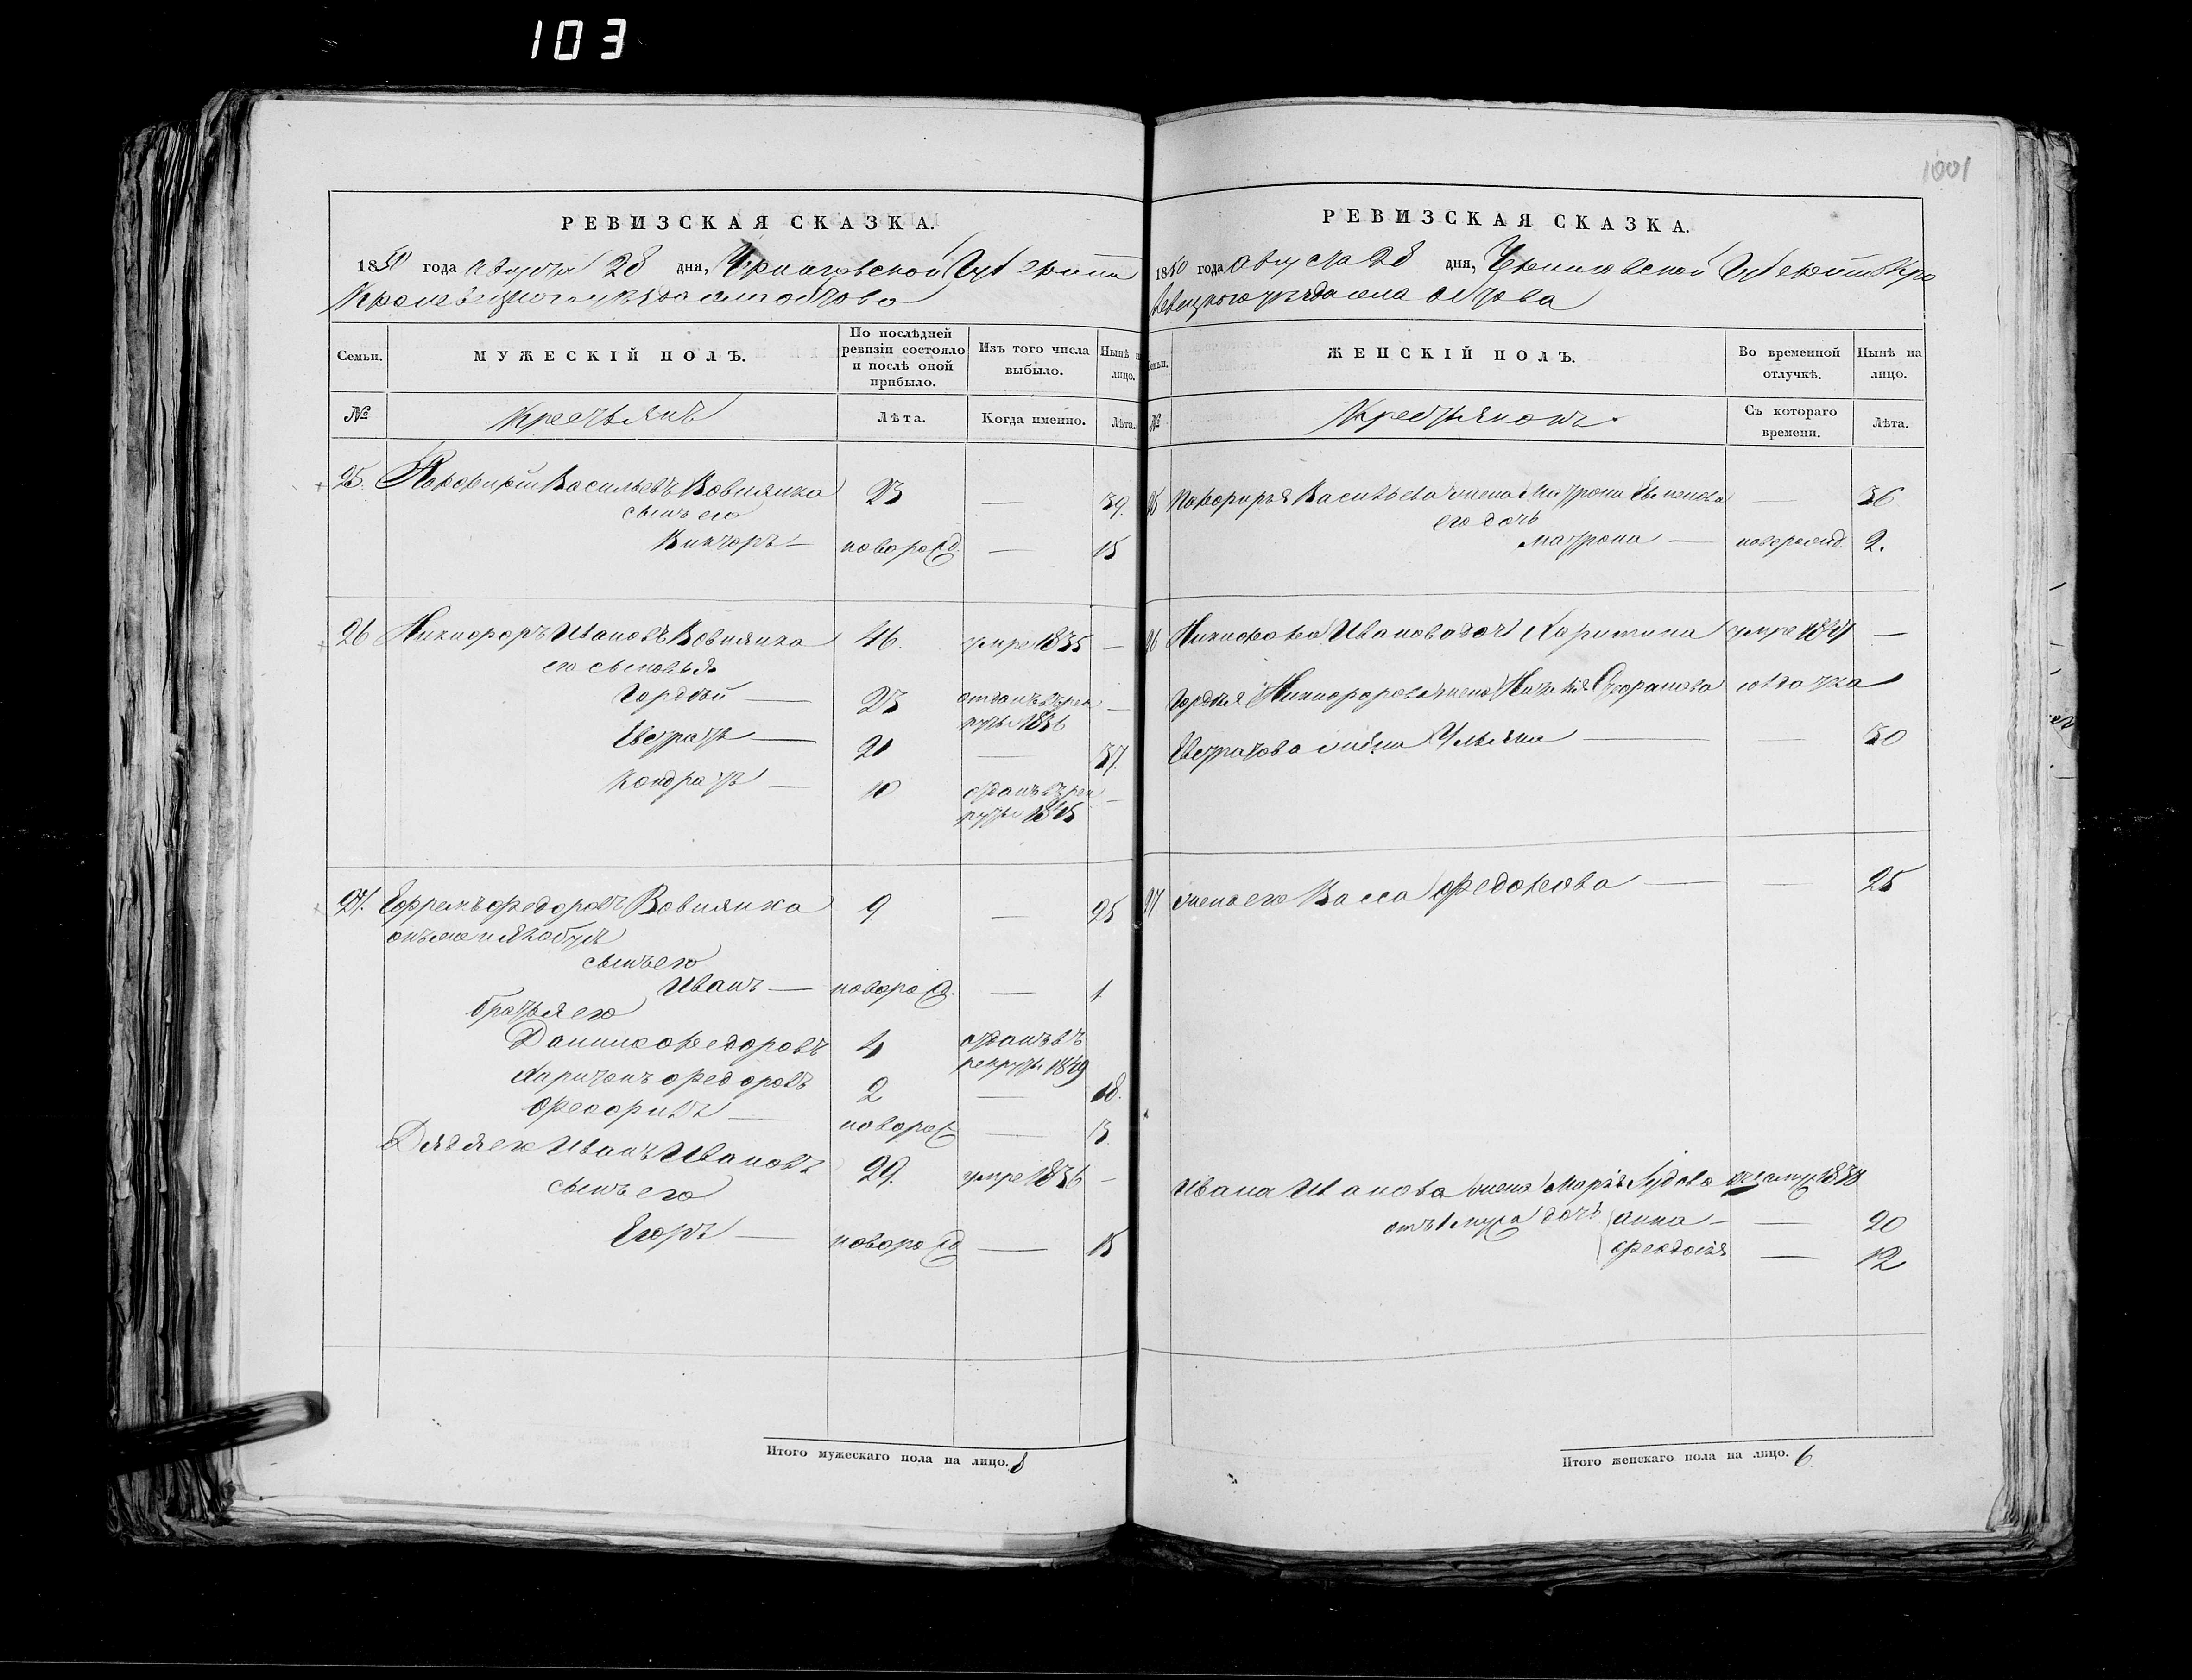 103
1001
РЕВИЗСКАЯ СКАЗКА.
1850 года августа 28 дня, Черниговской Губернiи
Кролевецкого уѣзда села Обтова
Семьи.
МУЖЕСКIЙ ПОЛЪ.
По послѣдней ревизiи состояло и послѣ оной прибыло.
Изъ того числа выбыло.
Нынѣ н лицо.
№
Крестьянъ
Лѣта.
Когда именно.
Лѣта.
25. Порфирiй Васильевъ Вовнянка 23 — 39.
сынъ его
Викторъ — новорожд. — 15
26 Никифоръ Ивановъ Вовнянка 46. умре 1835 —
его сыновья
Гордѣй — 23 отданъ въ рек
руты 1836 —
Евстратъ — 21 — 37.
Кондратъ — 10 отданъ въ рек
руты 1845 —
27. Ефремъ Федоровъ Вовнянка 9 — 25
онъ же и
сынъ его
Иванъ — новорожд. — 1
братья его
Данило Федоровъ 4 отданъ въ
рекруты 1849
Харитонъ Федоровъ 2 — 18.
— новорож — 13.
Дядя его Иванъ Ивановъ 29. умре 1836 —
сынъ его
Егоръ — новорожд — 15
Итого мужескаго пола на лицо. 8
РЕВИЗСКАЯ СКАЗКА.
1850 года Августа 28 дня, Черниговской Губернiи Кро
левецкого уѣзда села Обтова
Семьи.
ЖЕНСКIЙ ПОЛЪ.
Во временной отлучкѣ.
Нынѣ на лицо.
№
Крестьянокъ.
Съ котораго времени.
Лѣта.
25 Порфирья Васильева жена Матрона — 36
его дочь
Матрона — новорожд. 2.
26 Никифора Иванова дочь умре —
Гордѣя Никифорова жена солдатка
Евстратова жена Ульяна — — 30
27 жена его Васса — — 25
Ивана Иванова жена
отъ мужа дочь Анна — — 20
Феодосiя — 12
Итого женскаго пола на лицо. 6.